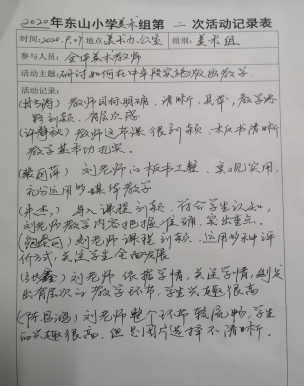 2020年东山小学美术组第二次活动记录表
时间:2020.9.27 地点:美术办公室 组别:美术组
参与人员:全体美术教师
活动主题:研讨如何在中年段实施版画教学
活动记录:
教师目标明确、清晰、具体,教学思
路新颖、有层次感
教师这节课很新颖,板书清晰
教学基本功扎实。
刘老师的板书工整、美观实用,
充分运用多媒体教学
导入课程新颖,符合学生认知,
刘老师教学内容把握准确,突出重点。
刘老师课程新颖,运用多种评
价方式,关注学生全面发展
刘老师依据学情,关注学情,创设
出有层次的教学环节,学生兴趣很高
刘老师整个环节较流畅,学生
的兴趣很高,但是图片选择不清晰。